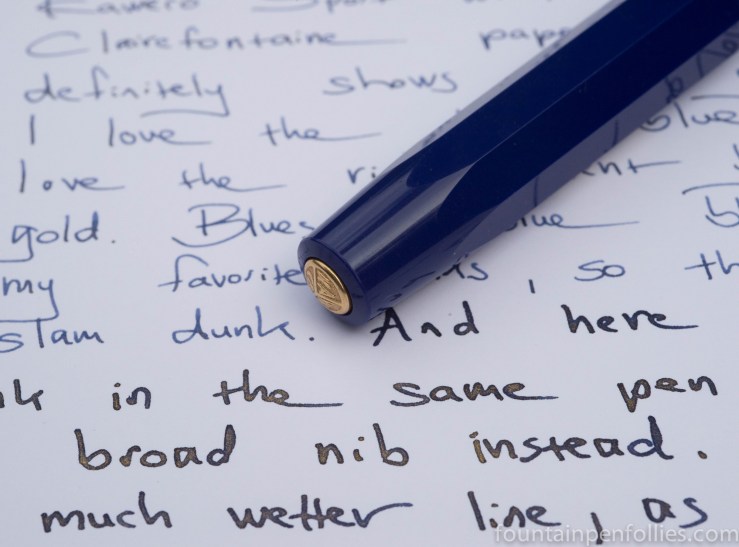 Kaweco Sport
Clairefontaine pap
definitely shows
I love the
love the ri nt
gold. Blues Blue
my favorite , so th
slam dunk. And here
nk in the same pen
broad nib instead.
much wetter line, as
fountainpenfollies.com